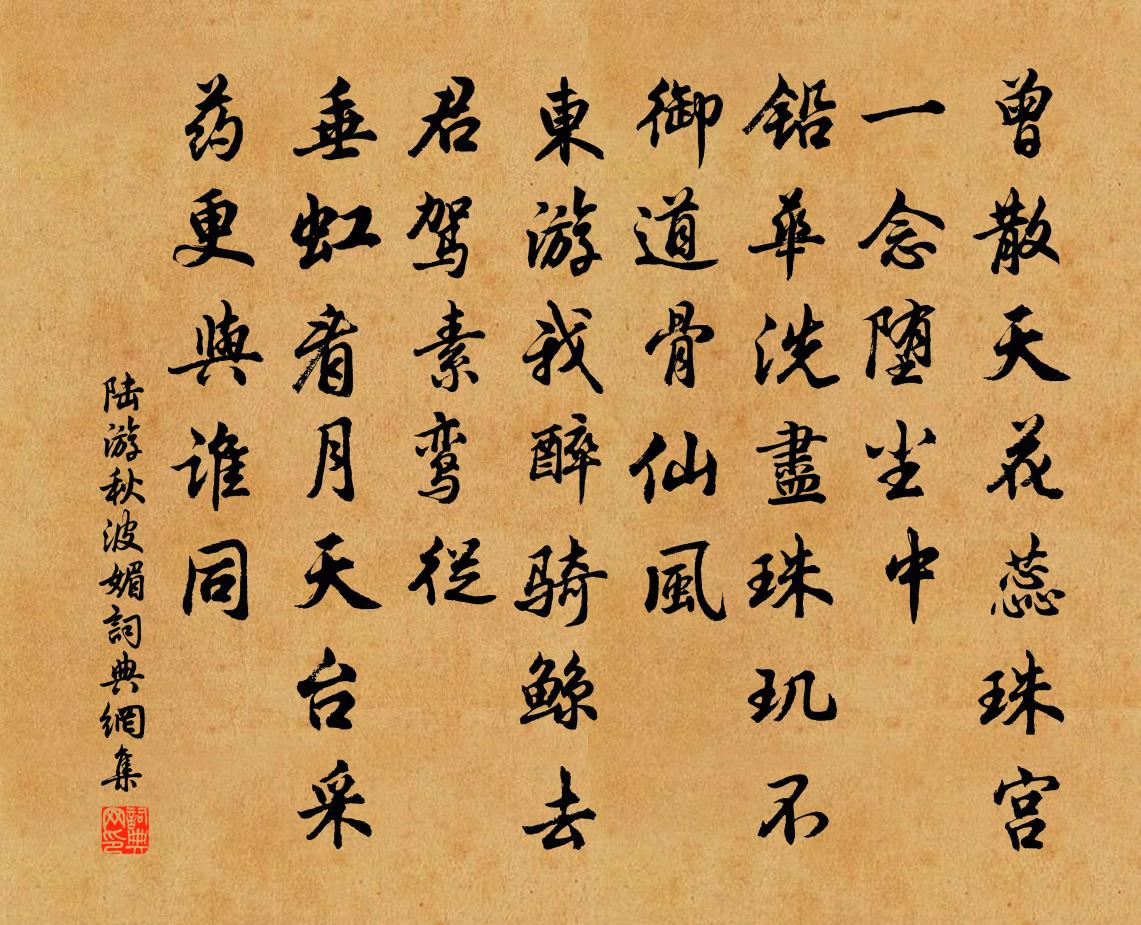 曾散天花蕊珠宫
一念堕尘中
铅華洗盡珠玑不
御道骨仙風
東游我醉骑鲸去
君驾素鸾從
垂虹看月天台采
药更與谁同
陆游秋波媚詞典網集
詞典网印